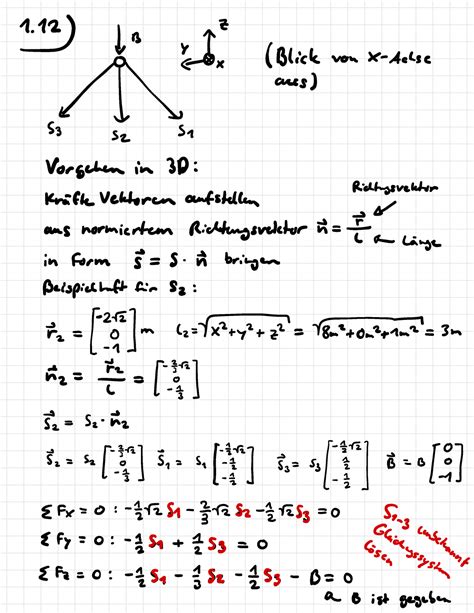 1.12)
B
z
y
x
(Blick von x-Achse
aus)
S3
S2
S1
Vorgehen in 3D:
Kräfte Vektoren aufstellen
Richtungsvektor
aus normiertem Richtungsvektor n⃗ = r⃗/l ← Länge
in Form s⃗ = S · n⃗ bringen
Beispielhaft für S2:
r⃗2 = [-2√2 0 -1] m l2 = √(x²+y²+z²) = √(8m²+0m²+1m²) = 3m
n⃗2 = r⃗2/l = [-2/3√2 0 -1/3]
s⃗2 = S2 · n⃗2
s⃗2 = S2 [-2/3√2 0 -1/3] s⃗1 = S1 [-1/2√2 -1/2 -1/2] s⃗3 = S3 [-1/2√2 1/2 -1/2] B⃗ = B [0 0 -1]
ΣFx = 0: -1/2√2 S1 - 2/3√2 S2 - 1/2√2 S3 = 0
ΣFy = 0: -1/2 S1 + 1/2 S3 = 0
ΣFz = 0: -1/2 S1 - 1/3 S2 - 1/2 S3 - B = 0
B ist gegeben
S1-3 unbekannt
Gleichungssystem
lösen